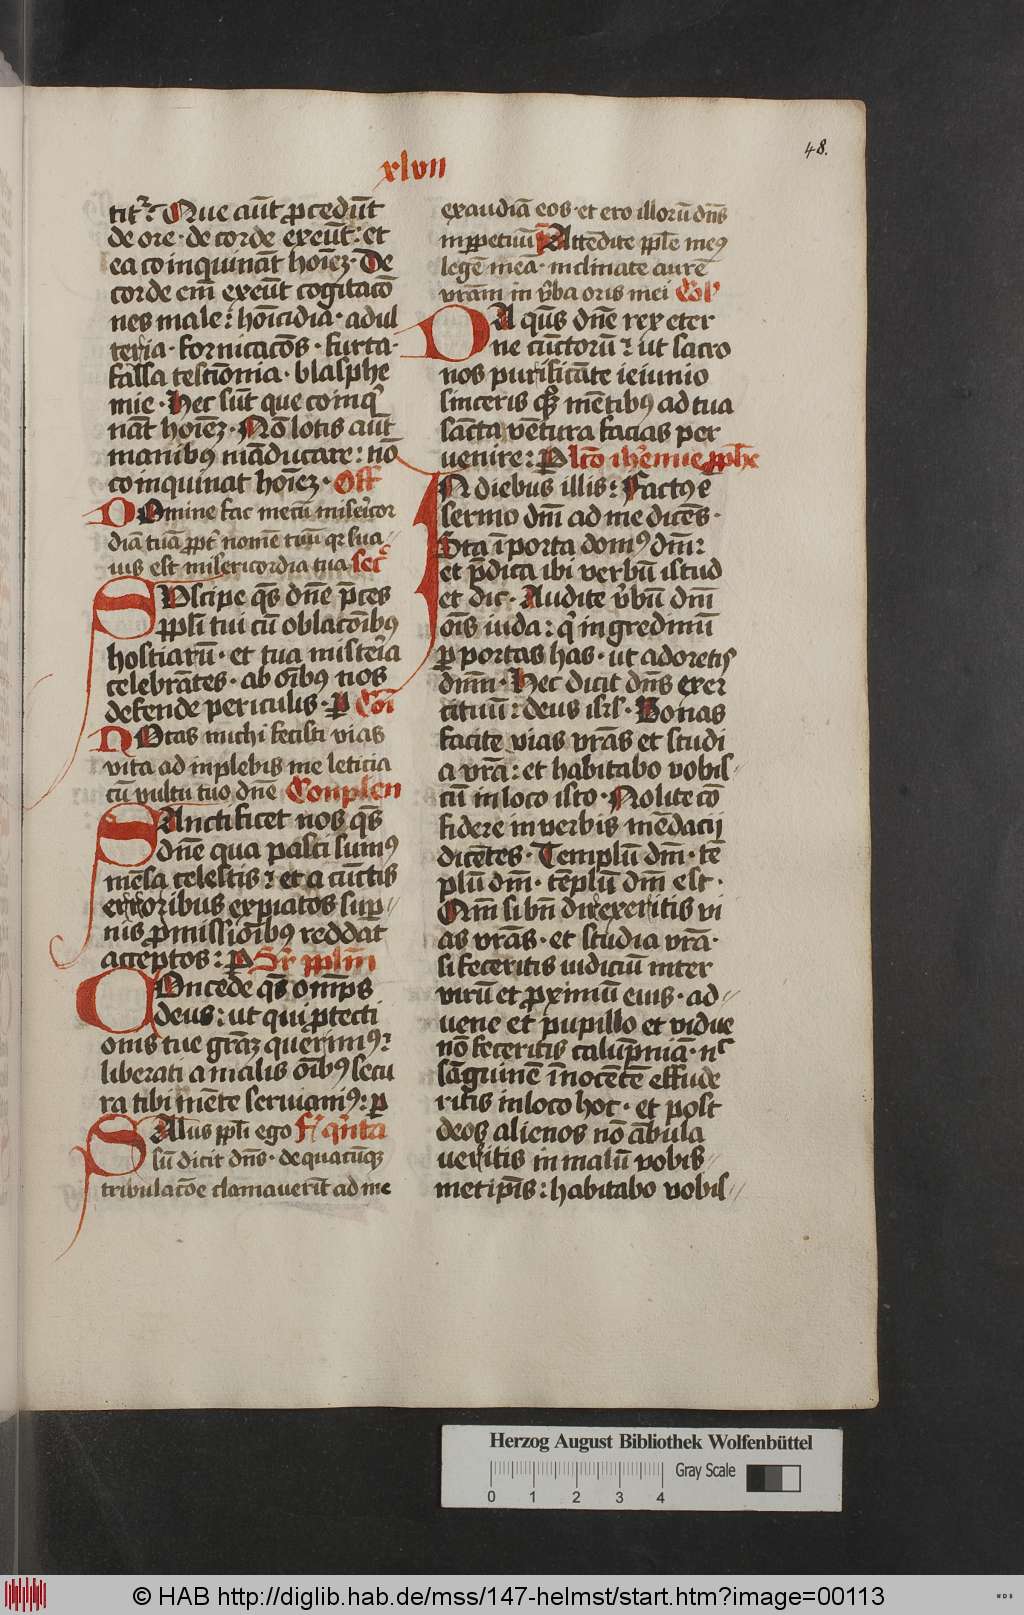 48.
xlvii
titr̃. Que aūt ꝓcedūt
de ore · de corde exeūt : et
ea coinquināt hoīeꝫ · De
corde em̄ exeūt cogitacō
nes male : hoīcidia · adul
teria · fornicacōs · furta ·
falsa testīonia · blasphe
mie · Hec sūt que coinqͥ
nāt hoīeꝫ · Nō lotis aūt
manibꝰ māducare : nō
coinquinat hoīeꝫ · Off
Domine fac mecū miẜicor
diā tuā ꝓpt̄ nomē tuū qꝛ sua
uis est miẜericordia tua Secͬ
SUscipe q̄s dn̄e p̄ces
ppl̄i tui cū oblacōibꝰ
hostiarū · et tua misteria
celebrātes · ab oībꝰ nos
defende periculis · ꝑ Cōi
NOtas michi fecisti vias
vita adinplebis me leticia
cū vultu tuo dn̄e Conplen
SAnctificet nos q̄s
dn̄e qua pasti sumꝰ
mēsa celestis : et a cūctis
erroribus expiatos suꝑ
nis ꝓmissiōibꝰ reddat
acceptos : ꝑ Sr̄ ppl̄m
COncede q̄s om̄ps
deus : ut qui ꝓtecti
onis tue gr̄aꝫ querimꝰ :
liberati a malis oībꝰ secu
ra tibi mēte seruiamꝰ : ꝑ
SAlus ppl̄i ego Fͬ qͥnta
sū dicit dn̄s · de quacūqꝫ
tribulacōe clamauerīt ad me
exaudiā eos · et ero illorū dn̄s
inꝑpetuū Attēdite pple meꝰ
legē meā · inclinate aurē
vrām in v̄ba oris mei Col̄
DA q̄us dn̄e rex eter
ne cūctorū : ut sacro
nos purificāte ieiunio
sinceris qꝫ mētibꝰ ad tua
sācta vētura facias per
uenire : ꝑ Lc̄o ihēmie ꝓphe
IN diebus illis : Factꝰ ē
sermo dn̄i ad me dicēs ·
Sta ī porta domꝰ dn̄i :
et p̄dica ibi verbū istud
et dic · Audite v̄bū dn̄i
oīs iuda : qͥ ingredimī
ꝑ portas has · ut adoretis
dn̄m · Hec dicit dn̄s exer
cituū : deus isrl · Bonas
facite vias vr̄as et studi
a vr̄a : et habitabo vobis
cū in loco isto · Nolite cō
fidere in verbis mēdacij
dicētes · Templū dn̄i · tē
plū dn̄i · tēplū dn̄i est ·
Qm̄ si bn̄ direxeritis vi
as vr̄as · et studia vr̄a ·
si feceritis iudiciū inter
virū et ꝓximū eius · ad
uene et pupillo et vidue
nō feceritis calūpniā · nͨ
sāguinē īnocētē effude
ritis in loco hoc · et post
deos alienos nō ābula
ueritis in malū vobis
metip̄is : habitabo vobis
Herzog August Bibliothek Wolfenbüttel
Gray Scale
0 1 2 3 4
© HAB http://diglib.hab.de/mss/147-helmst/start.htm?image=00113